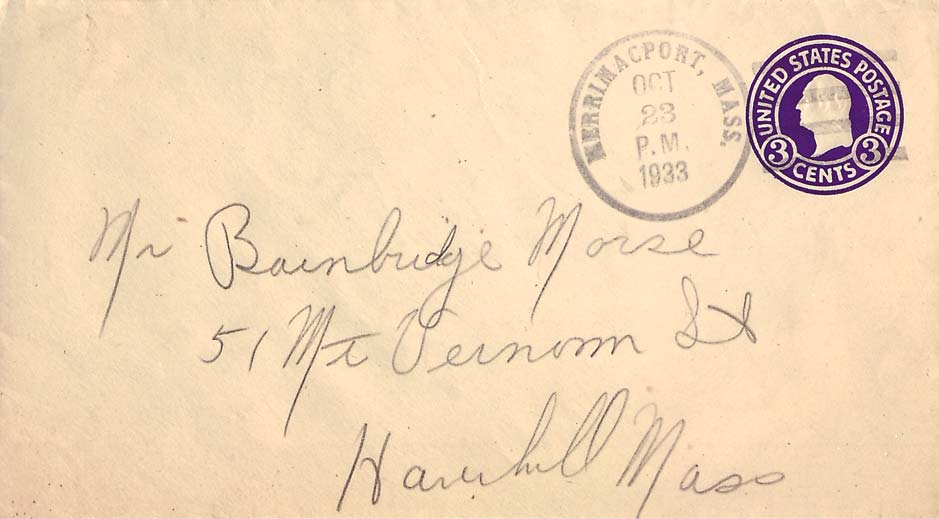 MERRIMACPORT, MASS.
OCT
23
P.M.
1933
UNITED STATES POSTAGE
3 CENTS 3
Mr Bainbridge Morse
51 Mt Vernonn St
Haverhill Mass